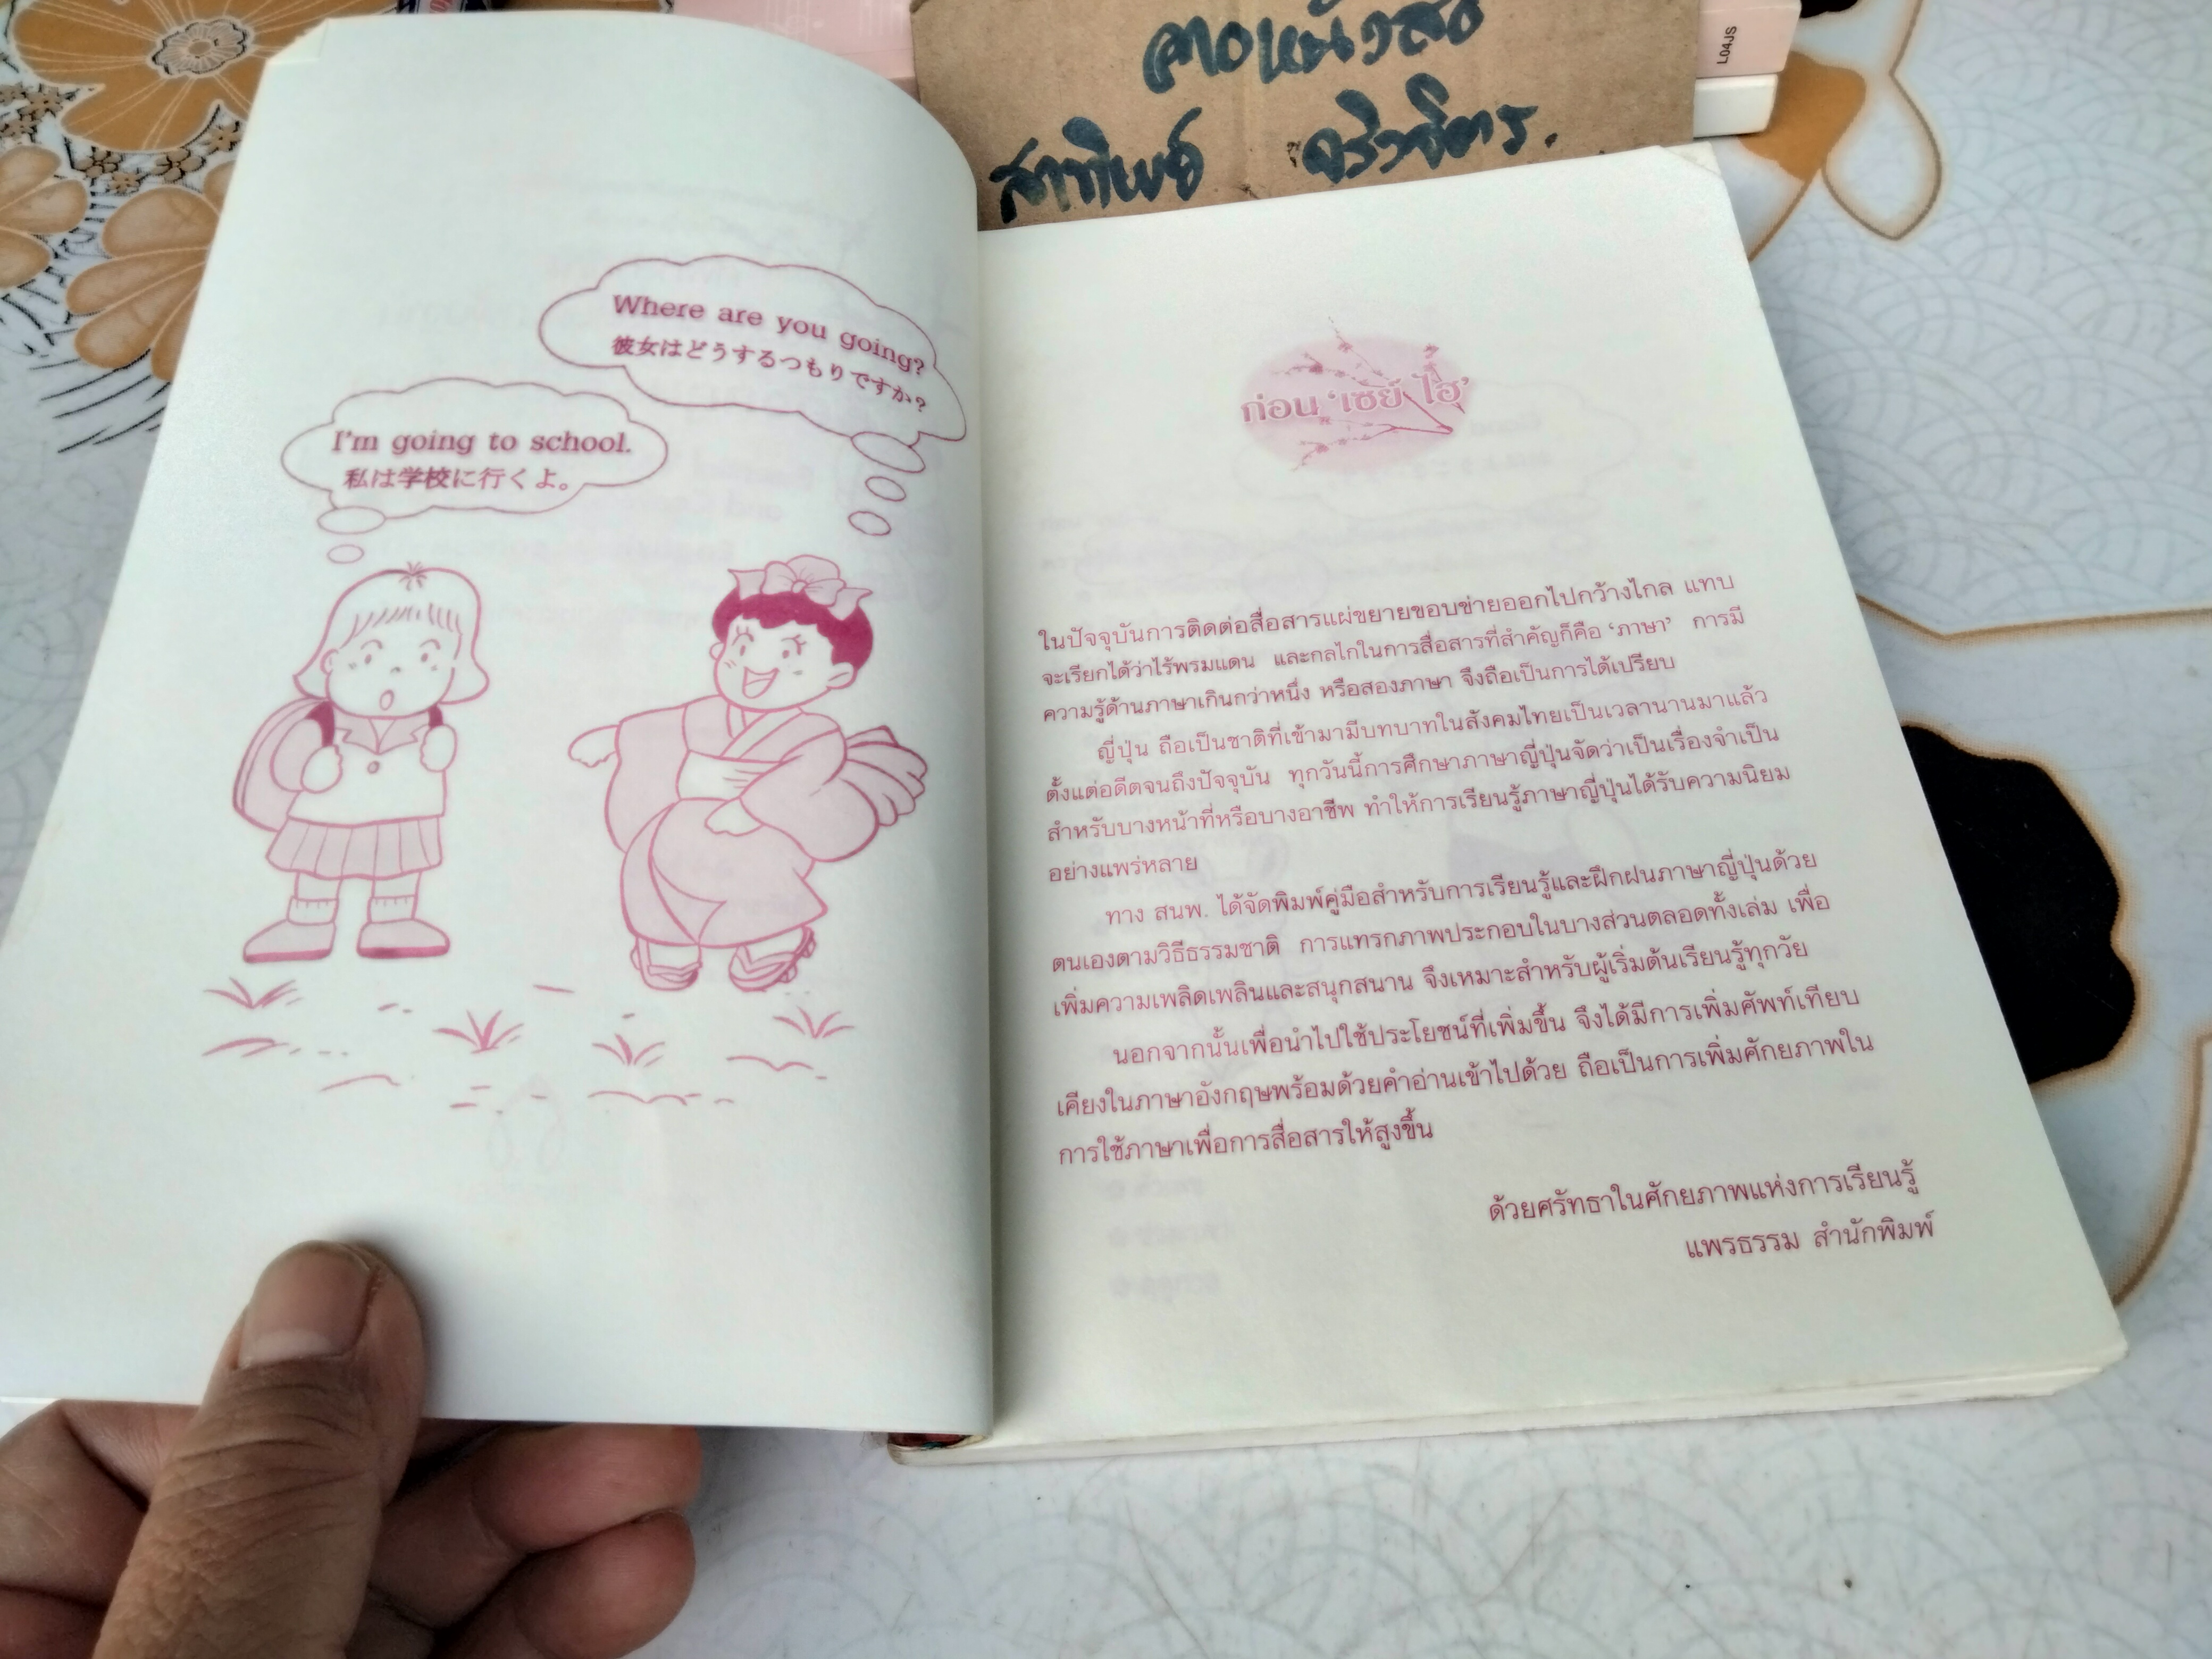 สาทิพย์
L04JS
Where are you going?
彼女はどうするつもりですか?
I'm going to school.
私は学校に行くよ。
ก่อน 'เซย์ ไฮ'
ในปัจจุบันการติดต่อสื่อสารแผ่ขยายขอบข่ายออกไปกว้างไกล แทบ
จะเรียกได้ว่าไร้พรมแดน และกลไกในการสื่อสารที่สำคัญก็คือ 'ภาษา' การมี
ความรู้ด้านภาษาเกินกว่าหนึ่ง หรือสองภาษา จึงถือเป็นการได้เปรียบ
ญี่ปุ่น ถือเป็นชาติที่เข้ามามีบทบาทในสังคมไทยเป็นเวลานานมาแล้ว
ตั้งแต่อดีตจนถึงปัจจุบัน ทุกวันนี้การศึกษาภาษาญี่ปุ่นจัดว่าเป็นเรื่องจำเป็น
สำหรับบางหน้าที่หรือบางอาชีพ ทำให้การเรียนรู้ภาษาญี่ปุ่นได้รับความนิยม
อย่างแพร่หลาย
ทาง สนพ. ได้จัดพิมพ์คู่มือสำหรับการเรียนรู้และฝึกฝนภาษาญี่ปุ่นด้วย
ตนเองตามวิธีธรรมชาติ การแทรกภาพประกอบในบางส่วนตลอดทั้งเล่ม เพื่อ
เพิ่มความเพลิดเพลินและสนุกสนาน จึงเหมาะสำหรับผู้เริ่มต้นเรียนรู้ทุกวัย
นอกจากนั้นเพื่อนำไปใช้ประโยชน์ที่เพิ่มขึ้น จึงได้มีการเพิ่มศัพท์เทียบ
เคียงในภาษาอังกฤษพร้อมด้วยคำอ่านเข้าไปด้วย ถือเป็นการเพิ่มศักยภาพใน
การใช้ภาษาเพื่อการสื่อสารให้สูงขึ้น
ด้วยศรัทธาในศักยภาพแห่งการเรียนรู้
แพรธรรม สำนักพิมพ์